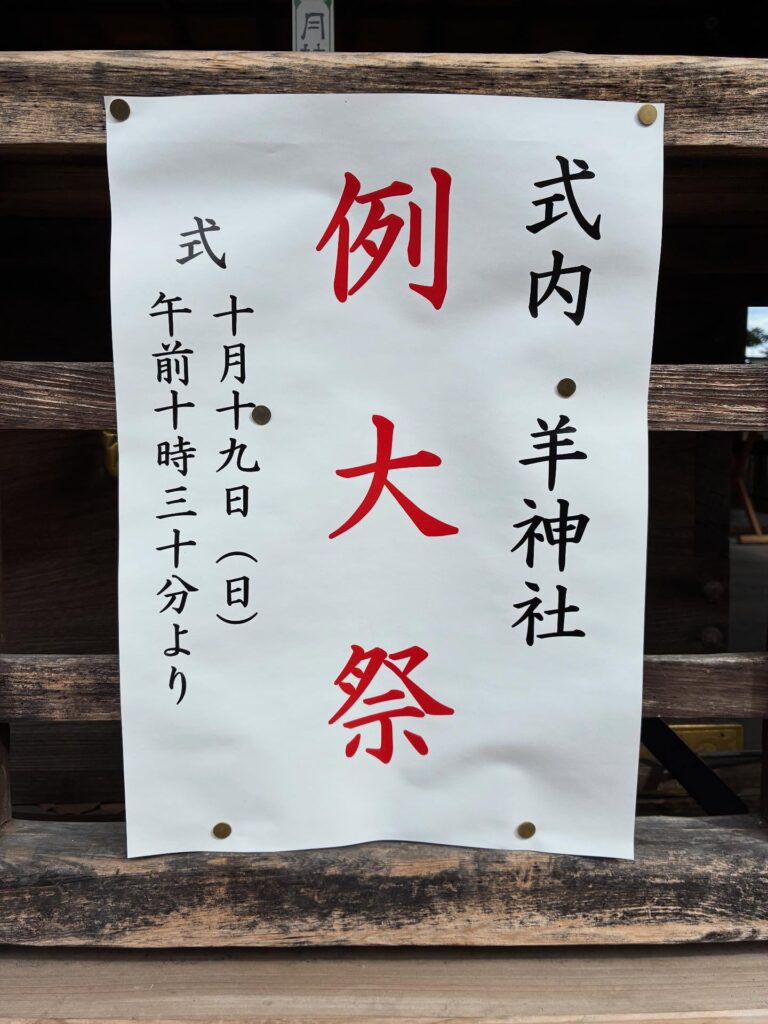 式内・羊神社
例大祭
式
十月十九日（日）
午前十時三十分より
月